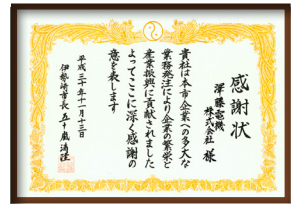 感謝状
澤藤電機
株式会社 様
貴社は本市企業への多大な
業務発注により企業の繁栄と
産業振興に貢献されました
よってここに深く感謝の
意を表します
平成三十年十一月十三日
伊勢崎市長 五十嵐清隆